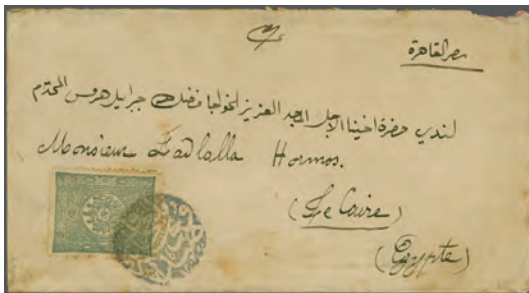 مصر القاهرة
لندي حضرة اخينا الاجل الامجد العزيز الخواجا فضل الله جبرايل هرمس المحترم
Monsieur Fadlalla Hormos.
(Le Caire)
(Egypte)